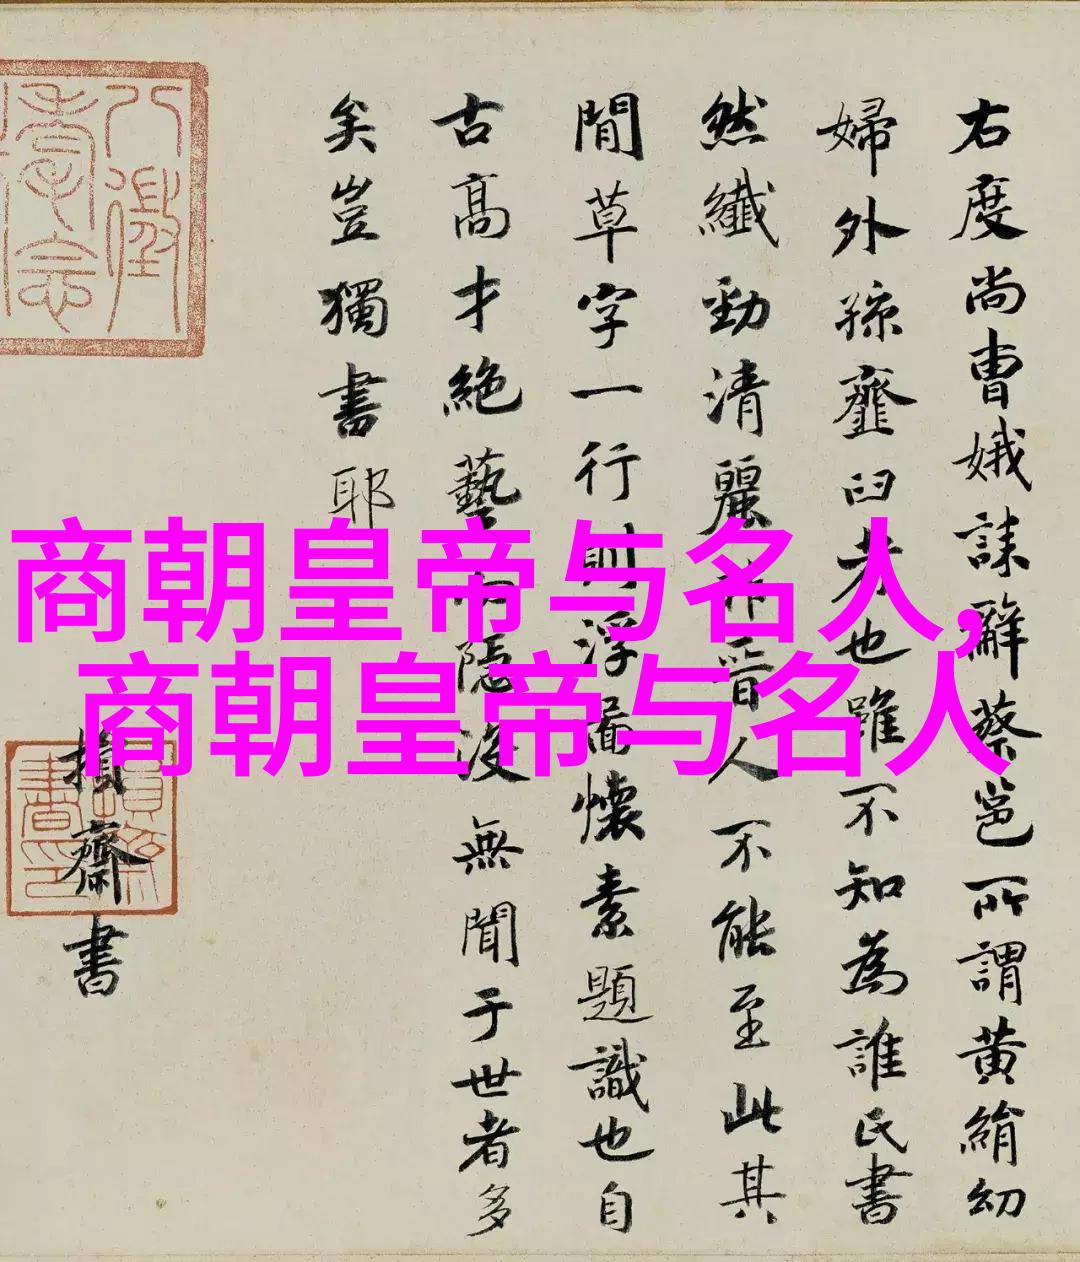 商朝皇帝与名人,
商朝皇帝与名人
右度尚曹娥誄辭蔡邕所謂黃絹幼
婦外孫齏臼者也雖不知為誰氏書
然纖勁清麗非晉人不能至此其
閒草字一行則浮圖懷素題識也自
古高才絕藝而隱沒無聞于世者多
矣豈獨書耶
損齋書
八徵耄念
損齋書印